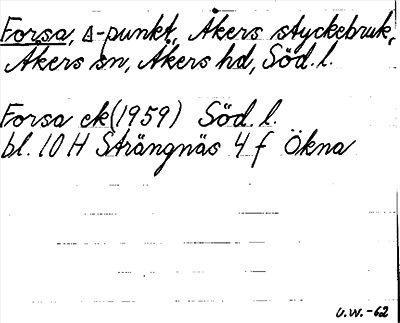 Forsa, ∆-punkt, Åkers styckebruk,
Åkers sn, Åkers hd, Söd. l.
Forsa ek (1959) Söd. l.
bl. 10 H Strängnäs 4 f Ökna
U.W.-62